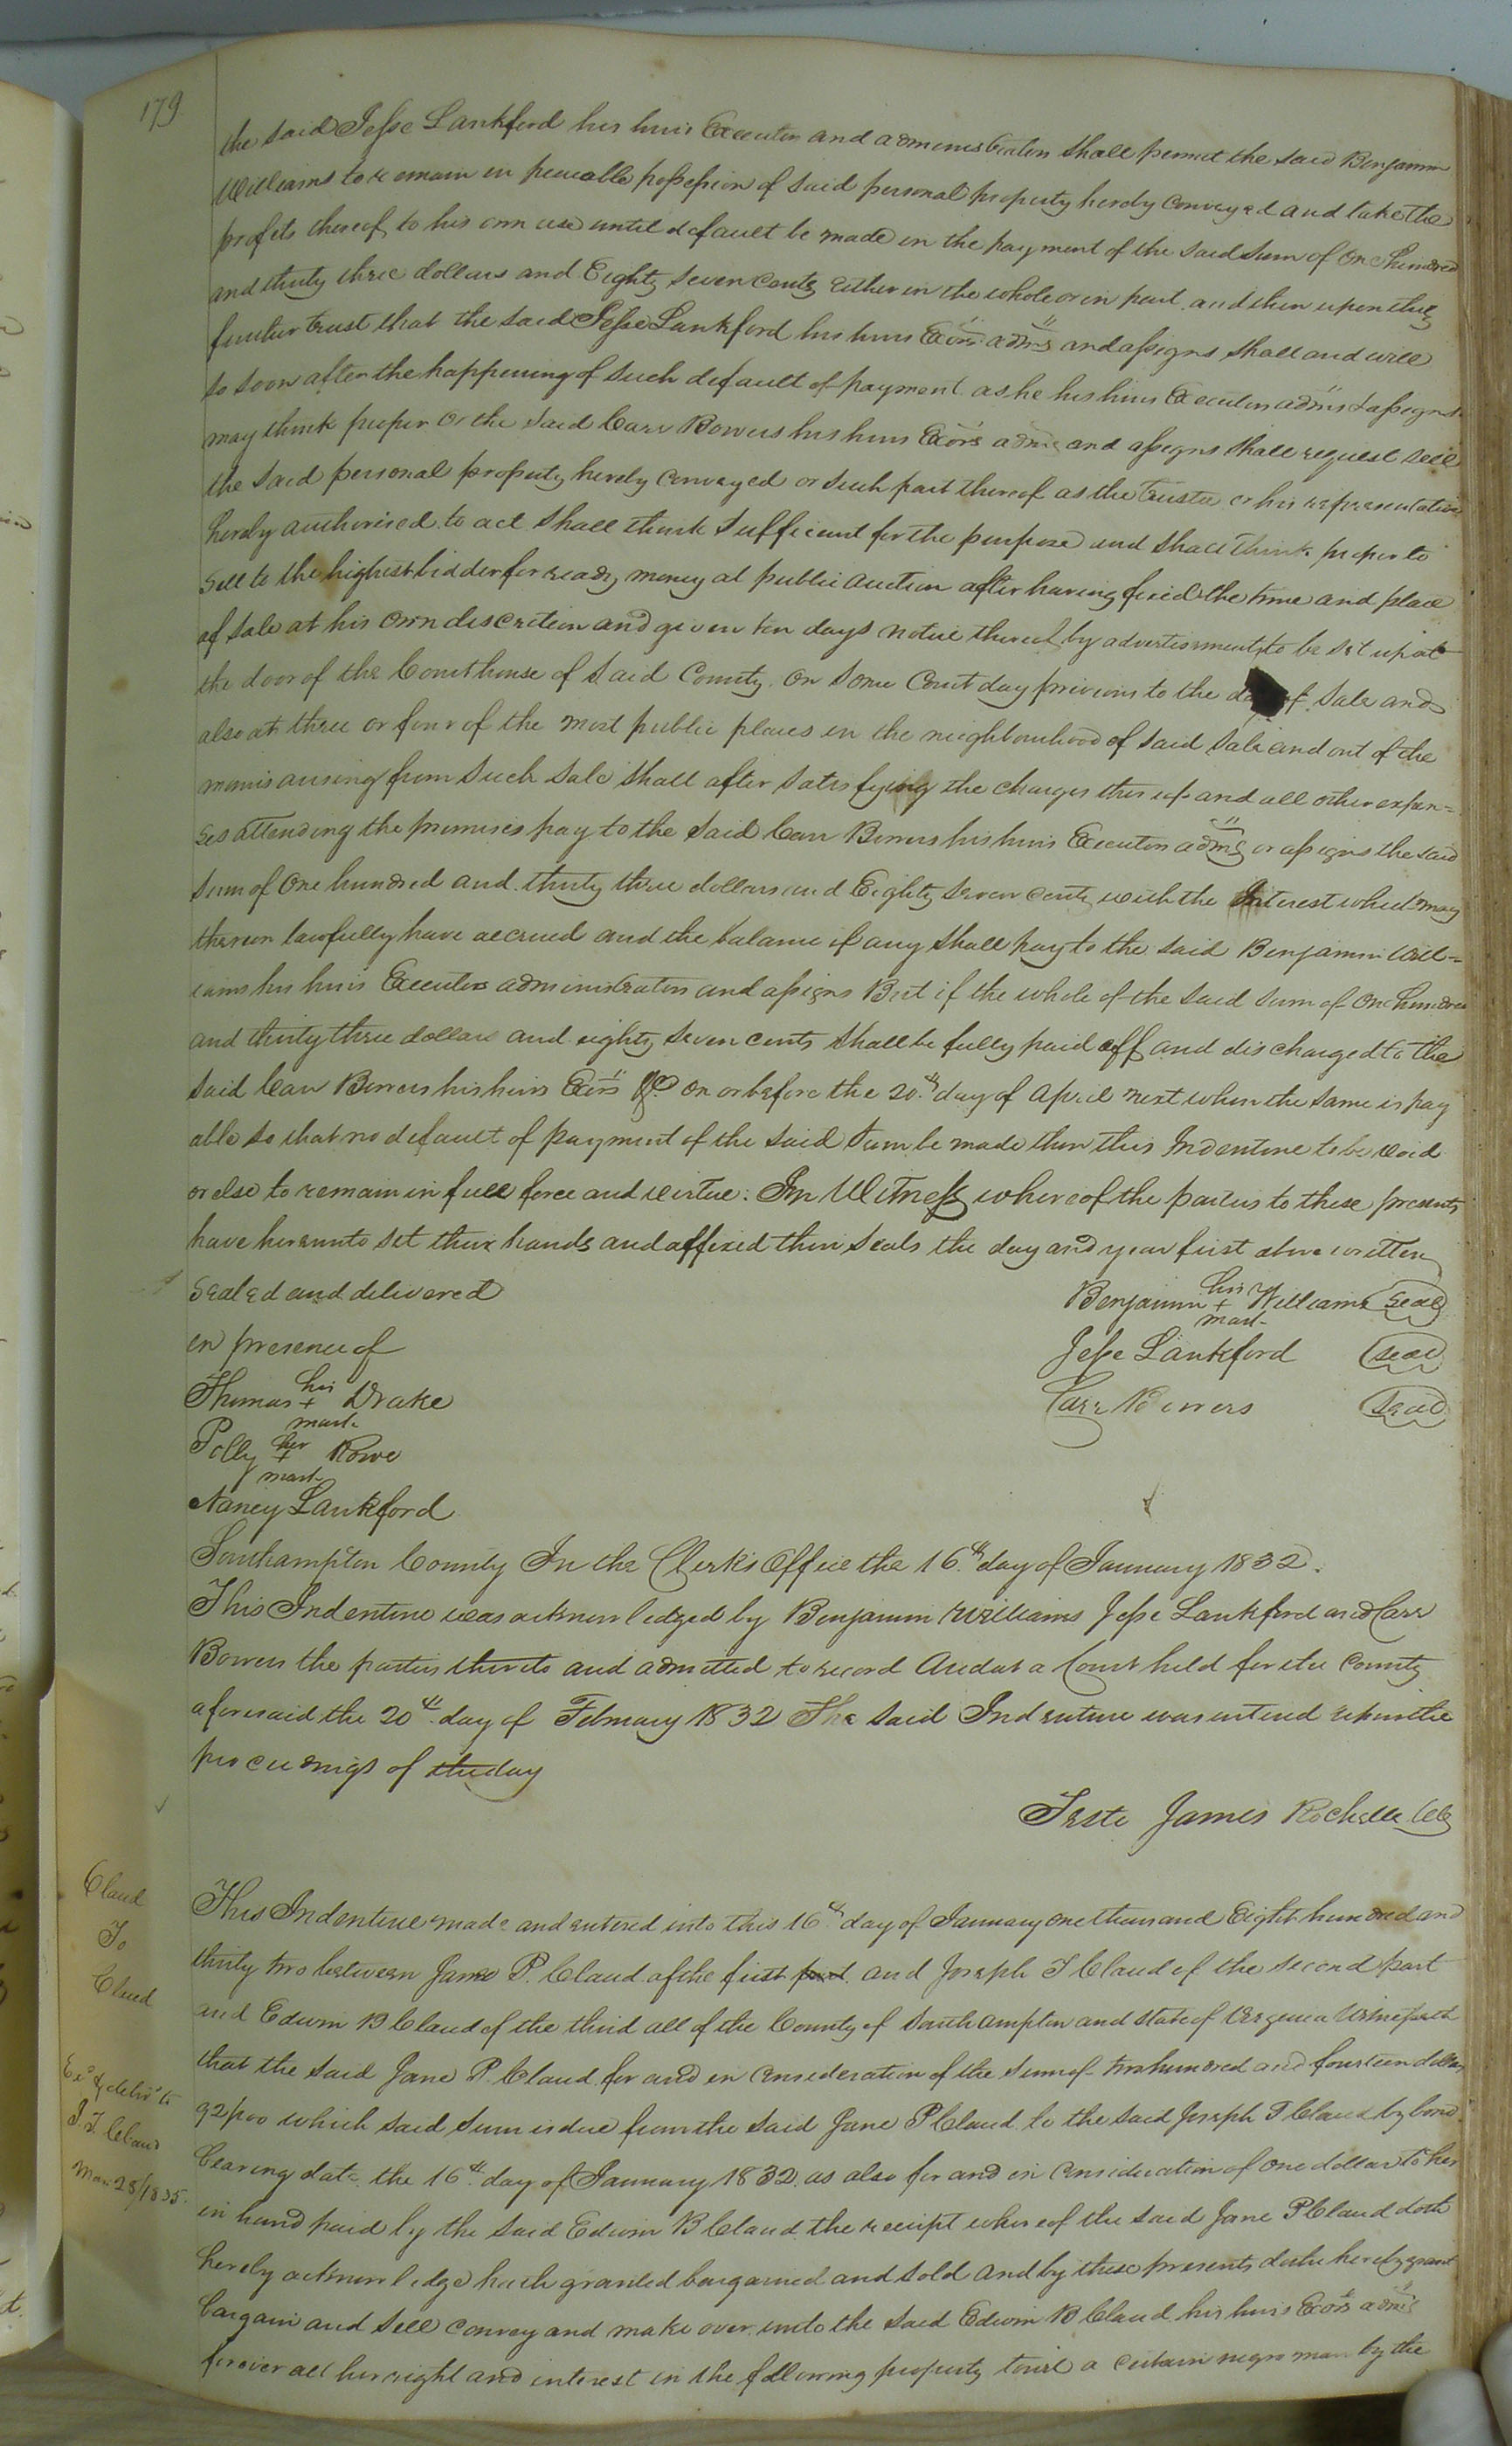 179
the said Jesse Lankford his heirs Executors and administrators shall permit the said Benjamin
Williams to remain in peaceable possession of said personal property hereby conveyed and take the
profits thereof to his own use until default be made in the payment of the said sum of One hundred
and thirty three dollars and Eighty seven cents either in the whole or in part and then upon this
further trust that the said Jesse Lankford his heirs Exors adms and assigns shall and will
so soon after the happening of such default of payment as he his heirs Executors adms & assigns
may think proper or the said Carr Bowers his heirs Exors adms and assigns shall request sell
the said personal property hereby conveyed or such part thereof as the Trustee or his representative
hereby authorised to act shall think sufficient for the purpose and shall think proper to
sell to the highest bidder for ready money at public auction after having fixed the time and place
of sale at his own discretion and given ten days notice thereof by advertisements to be set up at
the door of the Courthouse of said County on some Court day previous to the day of sale and
also at three or four of the most public places in the neighbourhood of said sale and out of the
monies arising from such sale shall after satisfying the charges thereof and all other expen=
ses attending the premises pay to the said Carr Bowers his heirs Executors adms or assigns the said
sum of One hundred and thirty three dollars and Eighty seven cents with the Interest which may
thereon lawfully have accrued and the balance if any shall pay to the said Benjamin Will=
iams his heirs Executors administrators and assigns But if the whole of the said sum of One hundred
and thirty three dollars and eighty seven cents shall be fully paid off and discharged to the
said Carr Bowers his heirs Exors &c on or before the 20th day of April next when the same is pay
able so that no default of payment of the said sum be made then this Indenture to be void
or else to remain in full force and virtue. In Witness whereof the parties to these presents
have hereunto set their hands and affixed their seals the day and year first above written
Sealed and delivered
in presence of
Thomas his + mark Drake
Polly her + mark Rowe
Nancy Lankford
Benjamin his + mark Williams Seal
Jesse Lankford Seal
Carr Bowers Seal
Southampton County In the Clerk's Office the 16th day of January 1832.
This Indenture was acknowledged by Benjamin Williams Jesse Lankford and Carr
Bowers the parties thereto and admitted to record And at a Court held for the County
aforesaid the 20th day of February 1832 The said Indenture was entered upon the
proceedings of the day
Teste James Rochelle Clk
Claud
To
Claud
Ex'd & deliv'd to
J. T. Claud
Mar 28/1835.
This Indenture made and entered into this 16th day of January one thousand Eight hundred and
thirty two between Jane P. Claud of the first part and Joseph T Claud of the second part
and Edwin B Claud of the third all of the County of Southampton and state of Virginia Witnesseth
that the said Jane P. Claud for and in consideration of the sum of two hundred and fourteen dollars
92/100 which said sum is due from the said Jane P Claud to the said Joseph T Claud by bond
bearing date the 16th day of January 1832 as also for and in consideration of one dollar to her
in hand paid by the said Edwin B Claud the receipt whereof the said Jane P Claud doth
hereby acknowledge hath granted bargained and sold and by these presents doth hereby grant
bargain and sell convey and make over unto the said Edwin B Claud his heirs Exors adms
forever all her right and interest in the following property towit a certain negro man by the